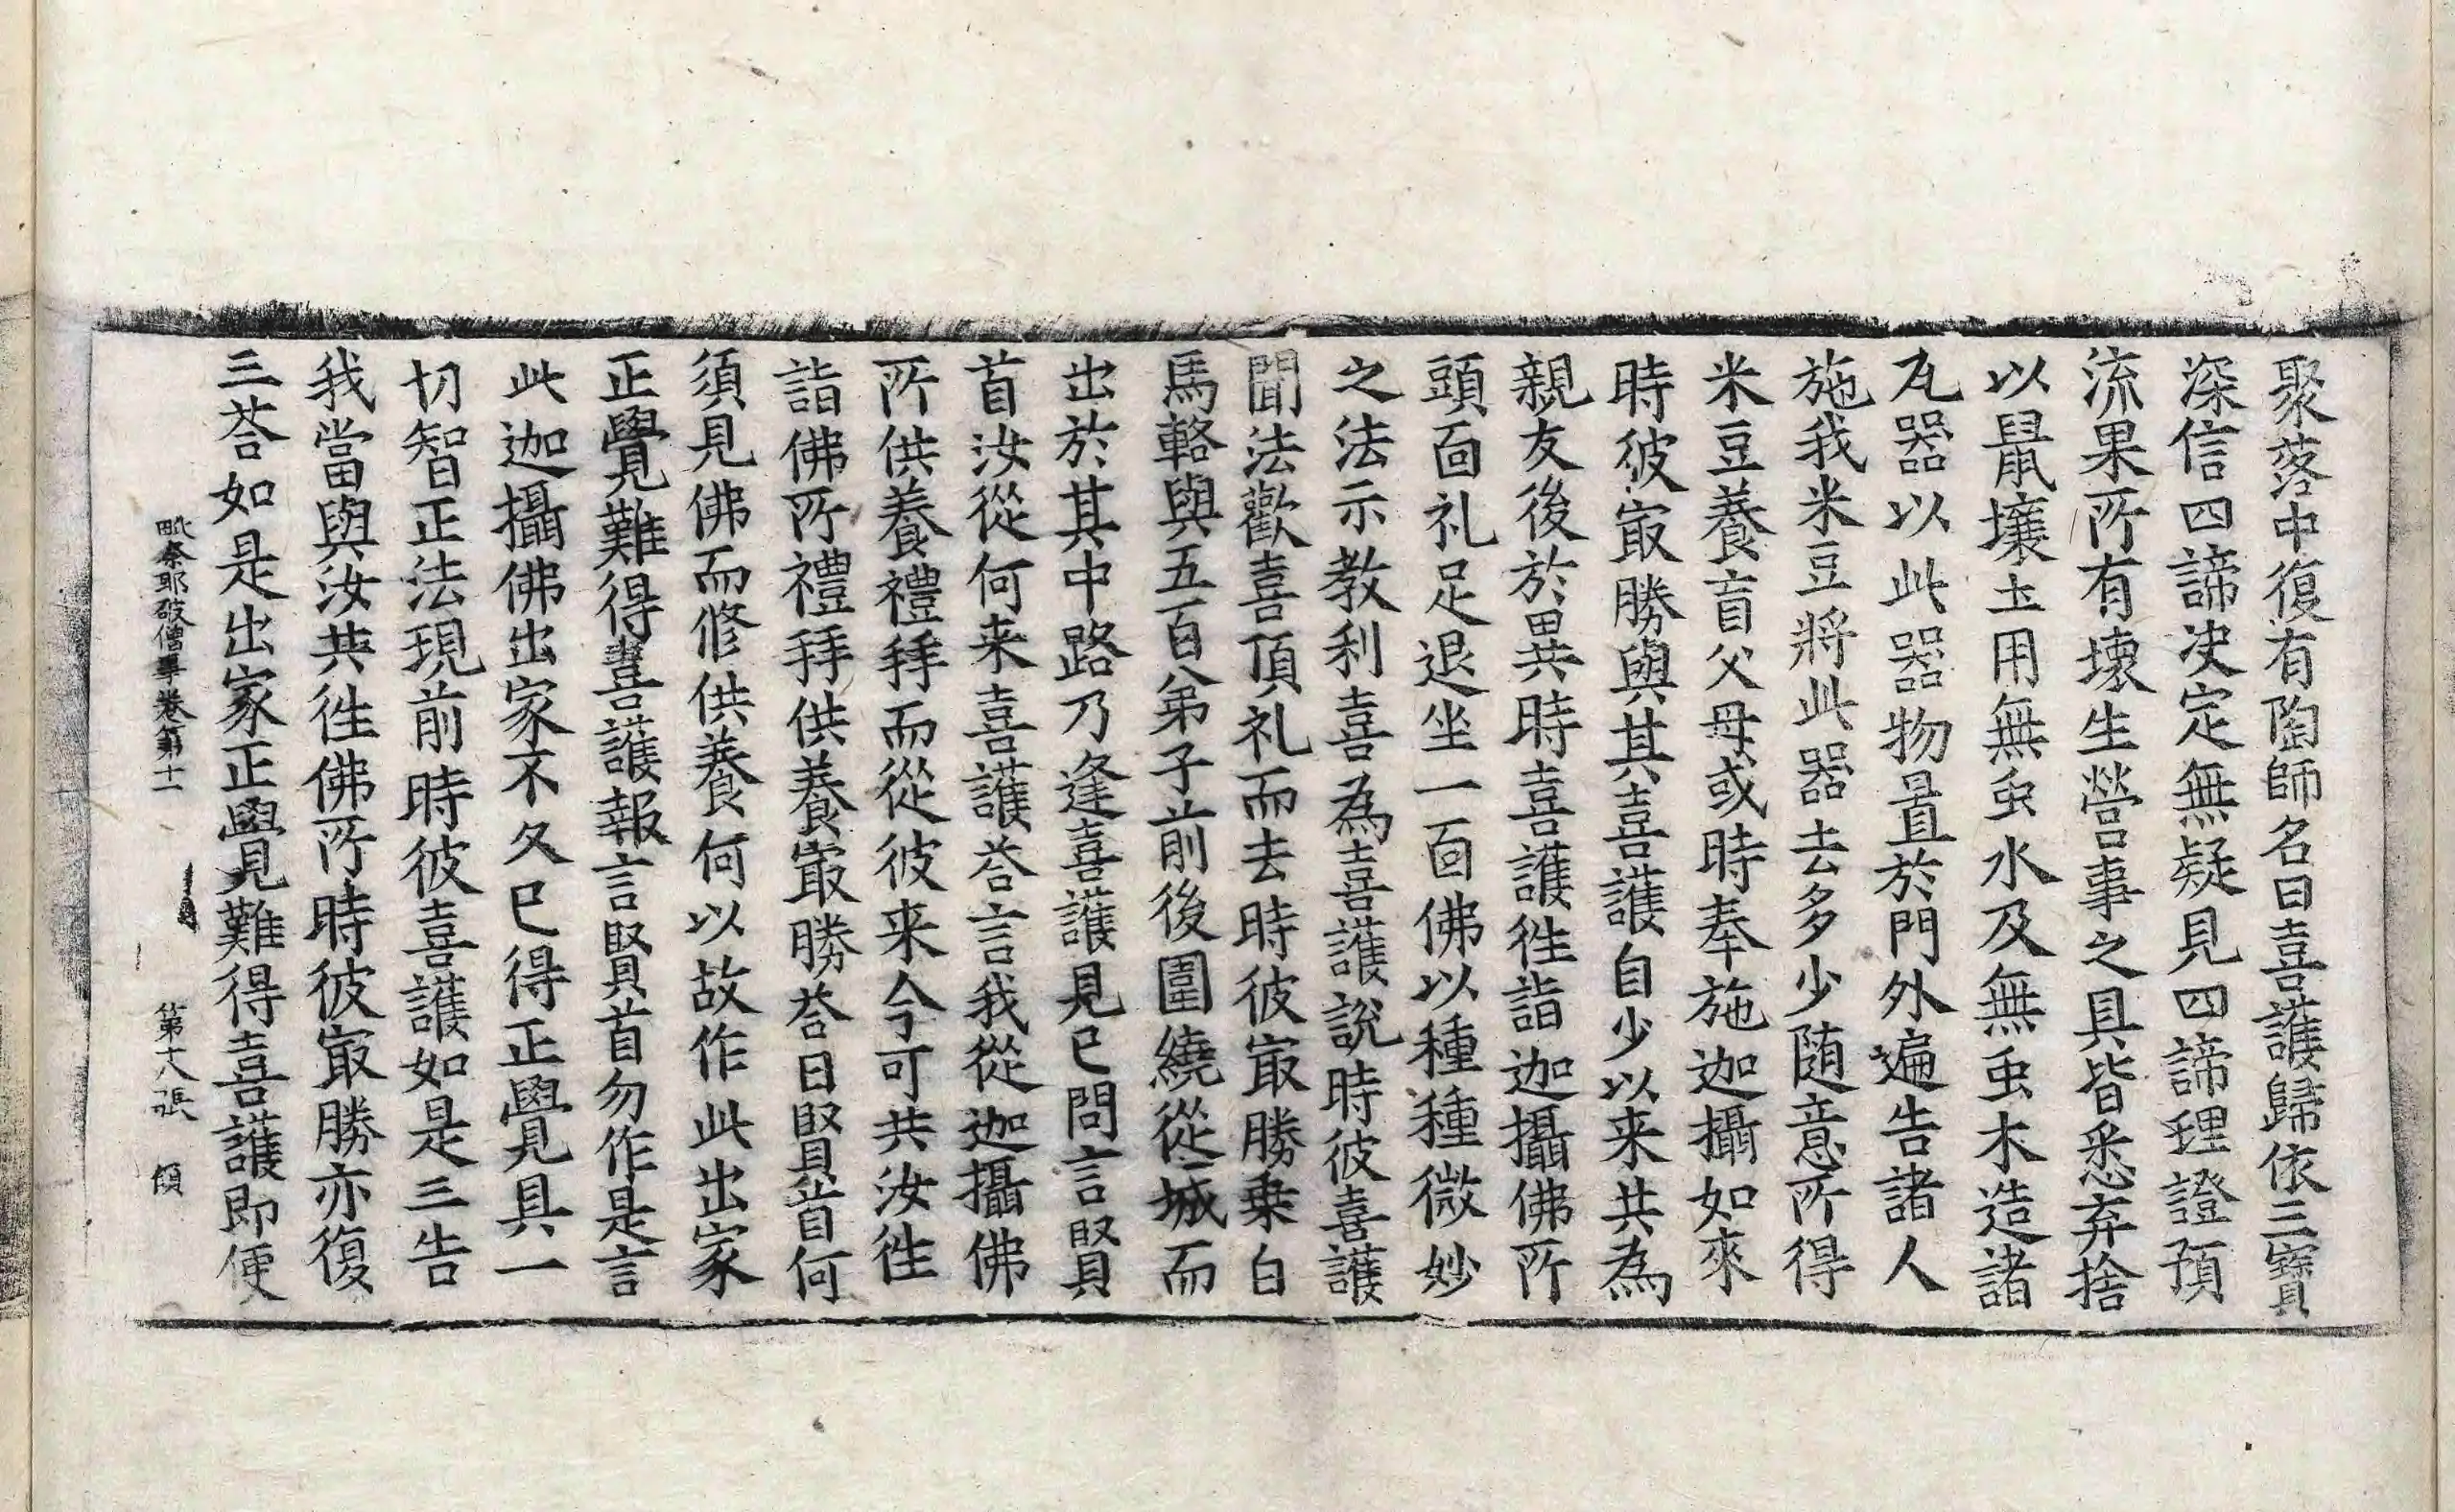 聚落中復有陶師名曰喜護歸依三寶
深信四諦決定無疑見四諦理證預
流果所有壞生營事之具皆悉弃捨
以鼠壤土用無虫水及無虫木造諸
瓦器以此器物置於門外遍告諸人
施我米豆將此器去多少隨意所得
米豆養盲父母或時奉施迦攝如來
時彼㝡勝與其喜護自少以来共為
親友後於異時喜護徃詣迦攝佛所
頭面礼足退坐一面佛以種種微妙
之法示教利喜為喜護說時彼喜護
聞法歡喜頂礼而去時彼㝡勝乗白
馬輅與五百弟子前後圍繞從城而
出於其中路乃逢喜護見已問言賢
首汝從何来喜護荅言我從迦攝佛
所供養禮拜而從彼来今可共汝徃
詣佛所禮拜供養㝡勝荅曰賢首何
須見佛而修供養何以故作此出家
正覺難得喜護報言賢首勿作是言
此迦攝佛出家不久已得正覺具一
切智正法現前時彼喜護如是三告
我當與汝共徃佛所時彼㝡勝亦復
三荅如是出家正覺難得喜護即便
毗奈耶破僧事卷第十一　第十八張　傾